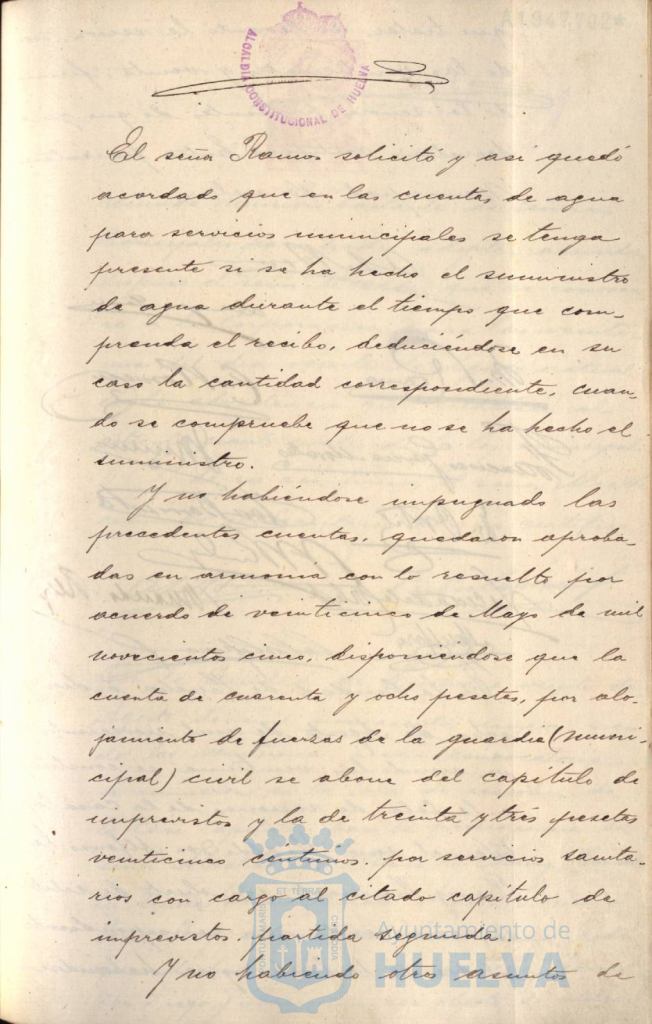 A1947702*
ALCALDIA CONSTITUCIONAL DE HUELVA
El señor Ramos solicitó y así quedó
acordado que en las cuentas de agua
para servicios municipales se tenga
presente si se ha hecho el suministro
de agua durante el tiempo que com-
prenda el recibo, deduciéndose en su
caso la cantidad correspondiente, cuan-
do se compruebe que no se ha hecho el
suministro.
Y no habiéndose impugnado las
precedentes cuentas, quedaron aproba-
das en armonia con lo resuelto por
acuerdo de veinticinco de Mayo de mil
novecientos cinco, disponiendose que la
cuenta de cuarenta y ocho pesetas, por alo-
jamiento de fuerzas de la guardia (muni-
cipal) civil se abone del capítulo de
imprevistos y la de treinta y tres pesetas
veinticinco céntimos. por servicios sanita-
rios con cargo al citado capítulo de
imprevistos. partida segunda.
Y no habiendo otros asuntos de
Ayuntamiento de
HUELVA